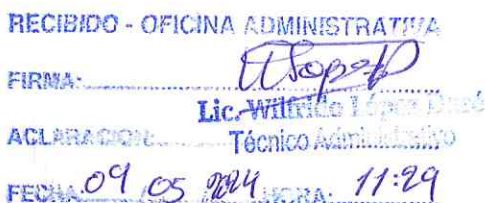 RECIBIDO - OFICINA ADMINISTRATIVA
FIRMA:
Lic. Wilfrido López
ACLARACION: Técnico Administrativo
FECHA: 09 05 2024 HORA: 11:29